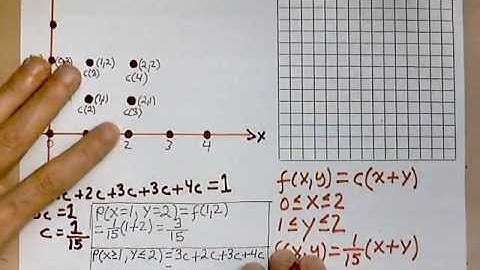 (1,2) (2,2)
c(3) c(4)
(1,1) (2,1)
c(2) c(3)
0 2 3 4 x
+2c+3c+3c+4c=1
c=1
c=1/15
P(X=1,Y=2)=f(1,2)
=1/15(1+2)=3/15
P(X≥1,Y≤2)=3c+2c+3c+4c
=
f(x,y)=c(x+y)
0≤x≤2
1≤y≤2
(x,y)=1/15(x+y)